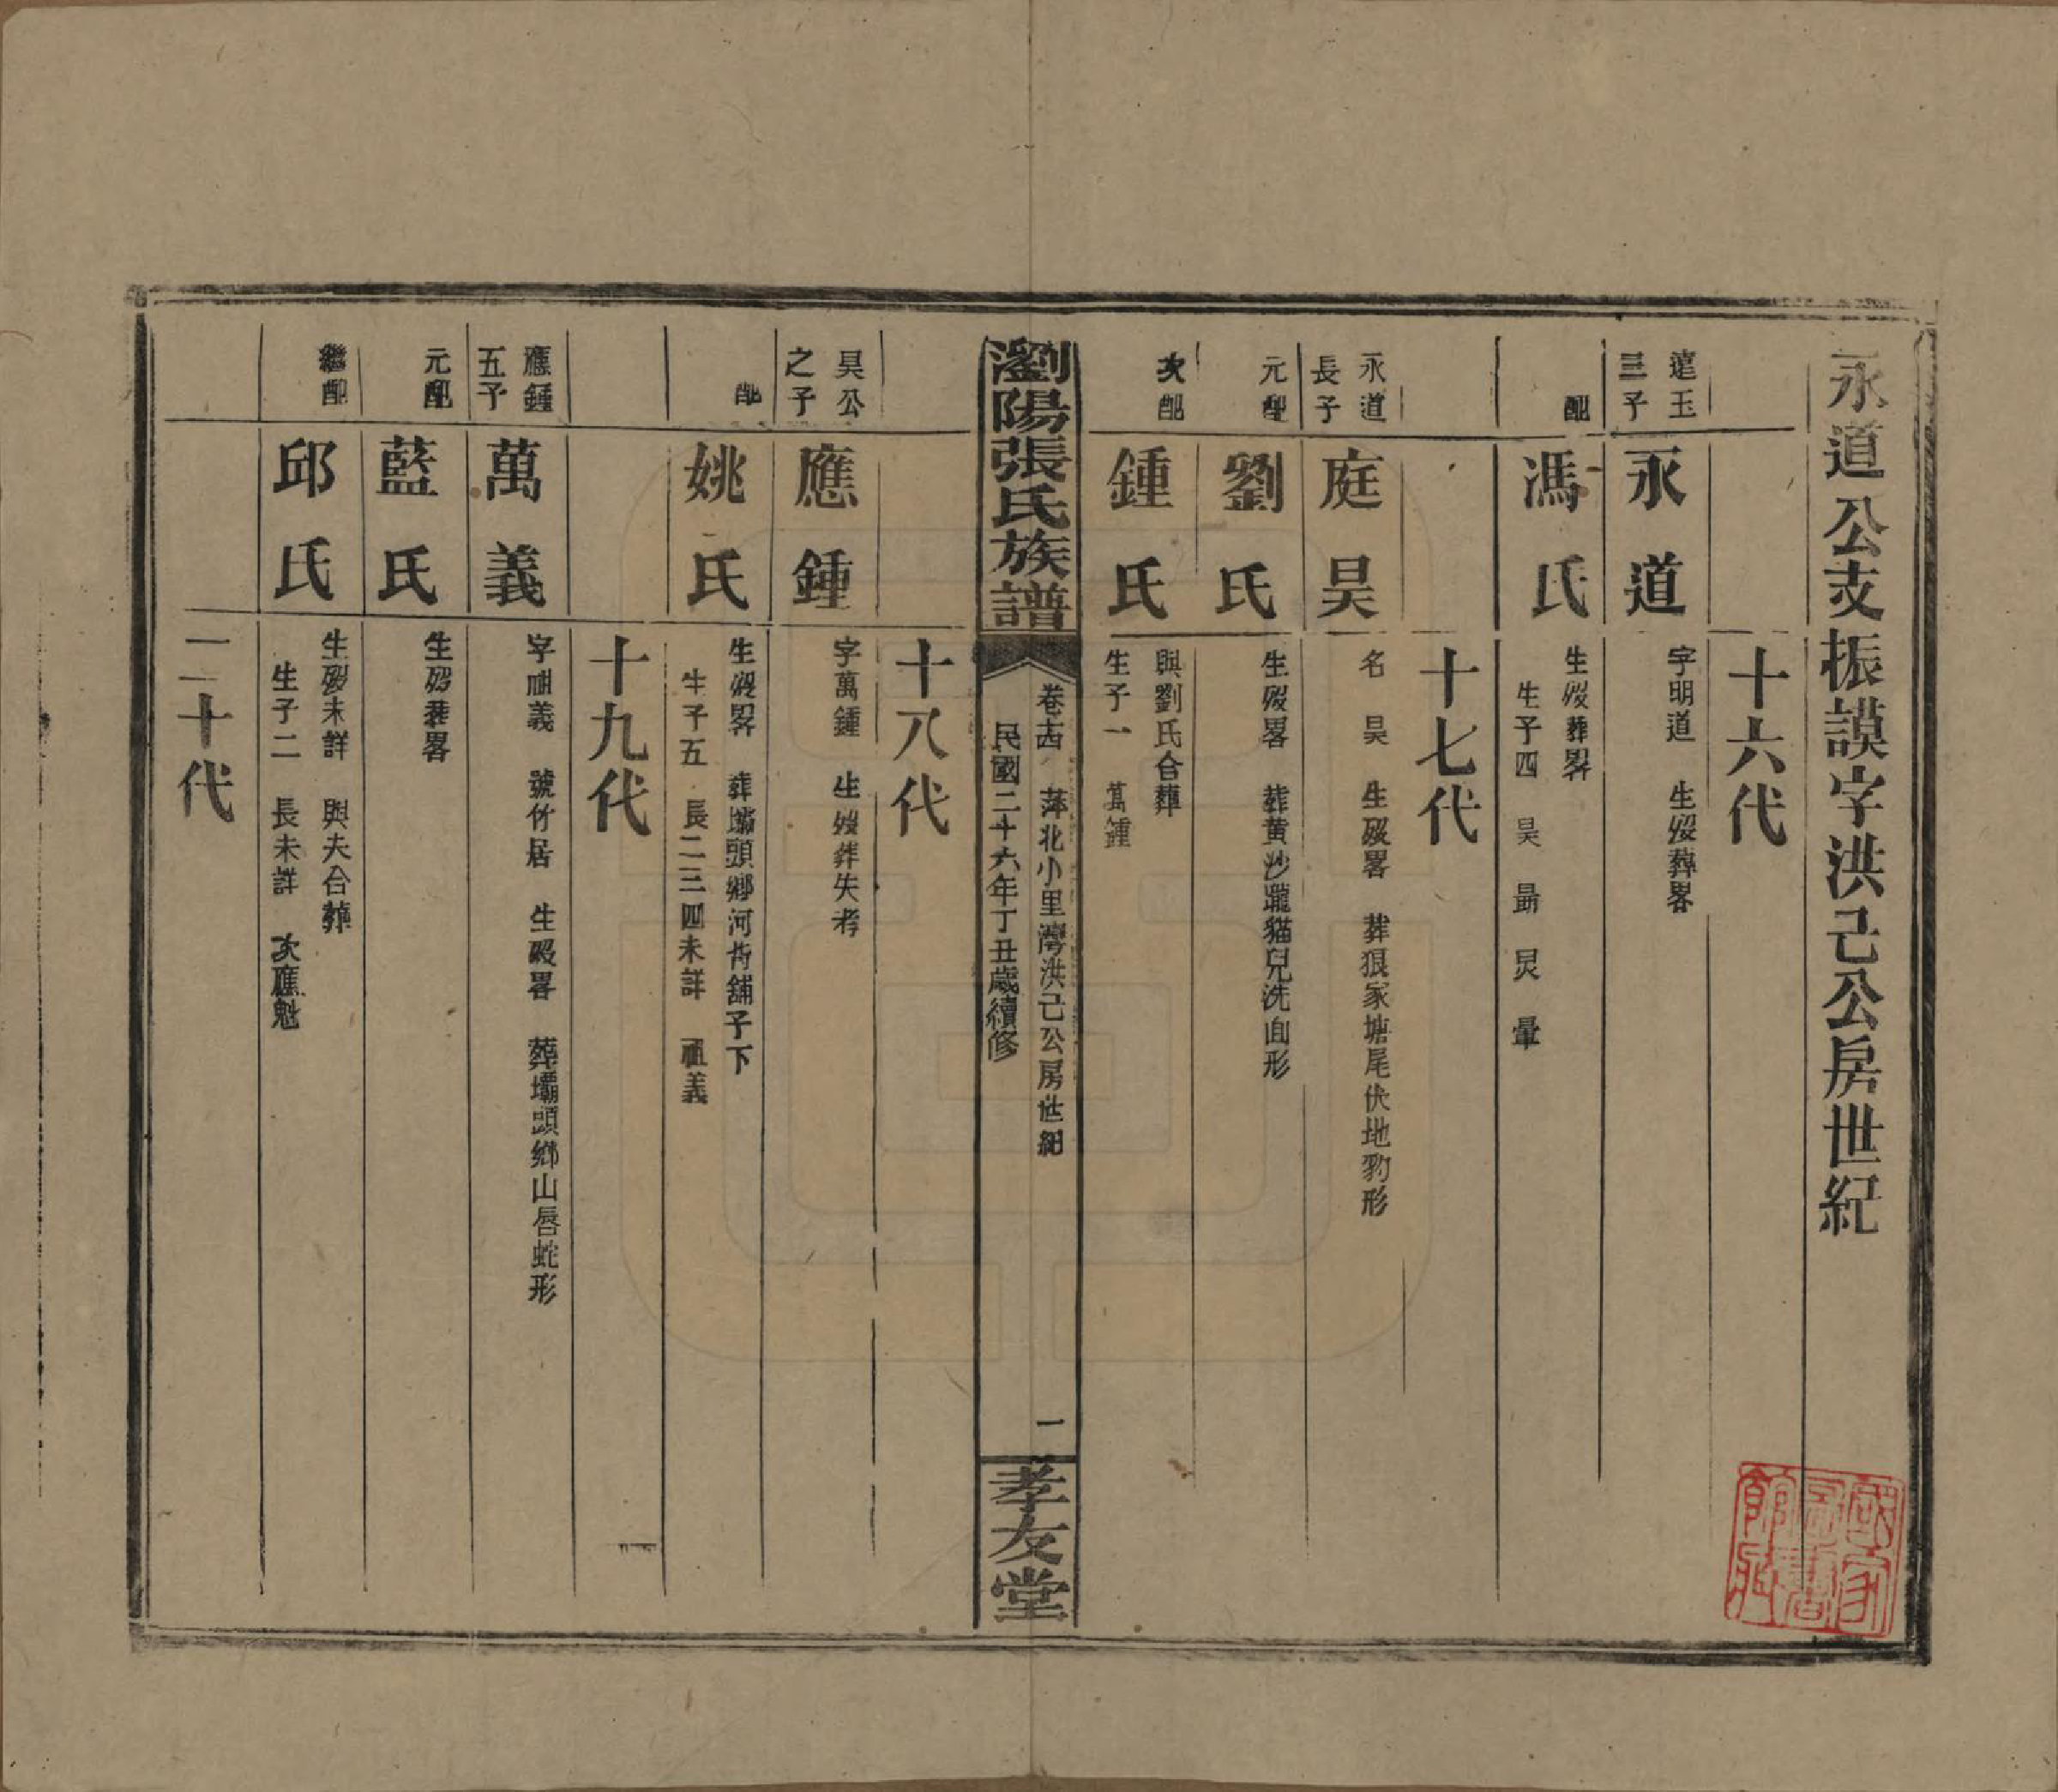 永道公支振謨字洪己公房世紀
十六代
遠玉
三子
永道
字明道 生歿葬畧
配
馮氏
生歿葬畧
生子四 昊 最 炅 暈
十七代
永道
長子
庭昊
名昊 生歿畧 葬狠家塘尾伏地豹形
元配
劉氏
生歿畧 葬黄沙壠貓兒洗面形
次配
鍾氏
與劉氏合葬
生子一 萬鍾
瀏陽張氏族譜
卷十四 萍北小里灣洪己公房世紀
民國二十六年丁丑歲續修
一
孝友堂
十八代
昊公
之子
應鍾
字萬鍾 生歿葬失考
配
姚氏
生歿畧 葬壩頭鄉河背鋪子下
生子五 長二三四未詳 祖義
十九代
應鍾
五子
萬義
字祖義 號竹居 生歿畧 葬壩頭鄉山唇蛇形
元配
藍氏
生歿葬畧
繼配
邱氏
生歿未詳 與夫合葬
生子二 長未詳 次應魁
二十代
國家圖書館藏